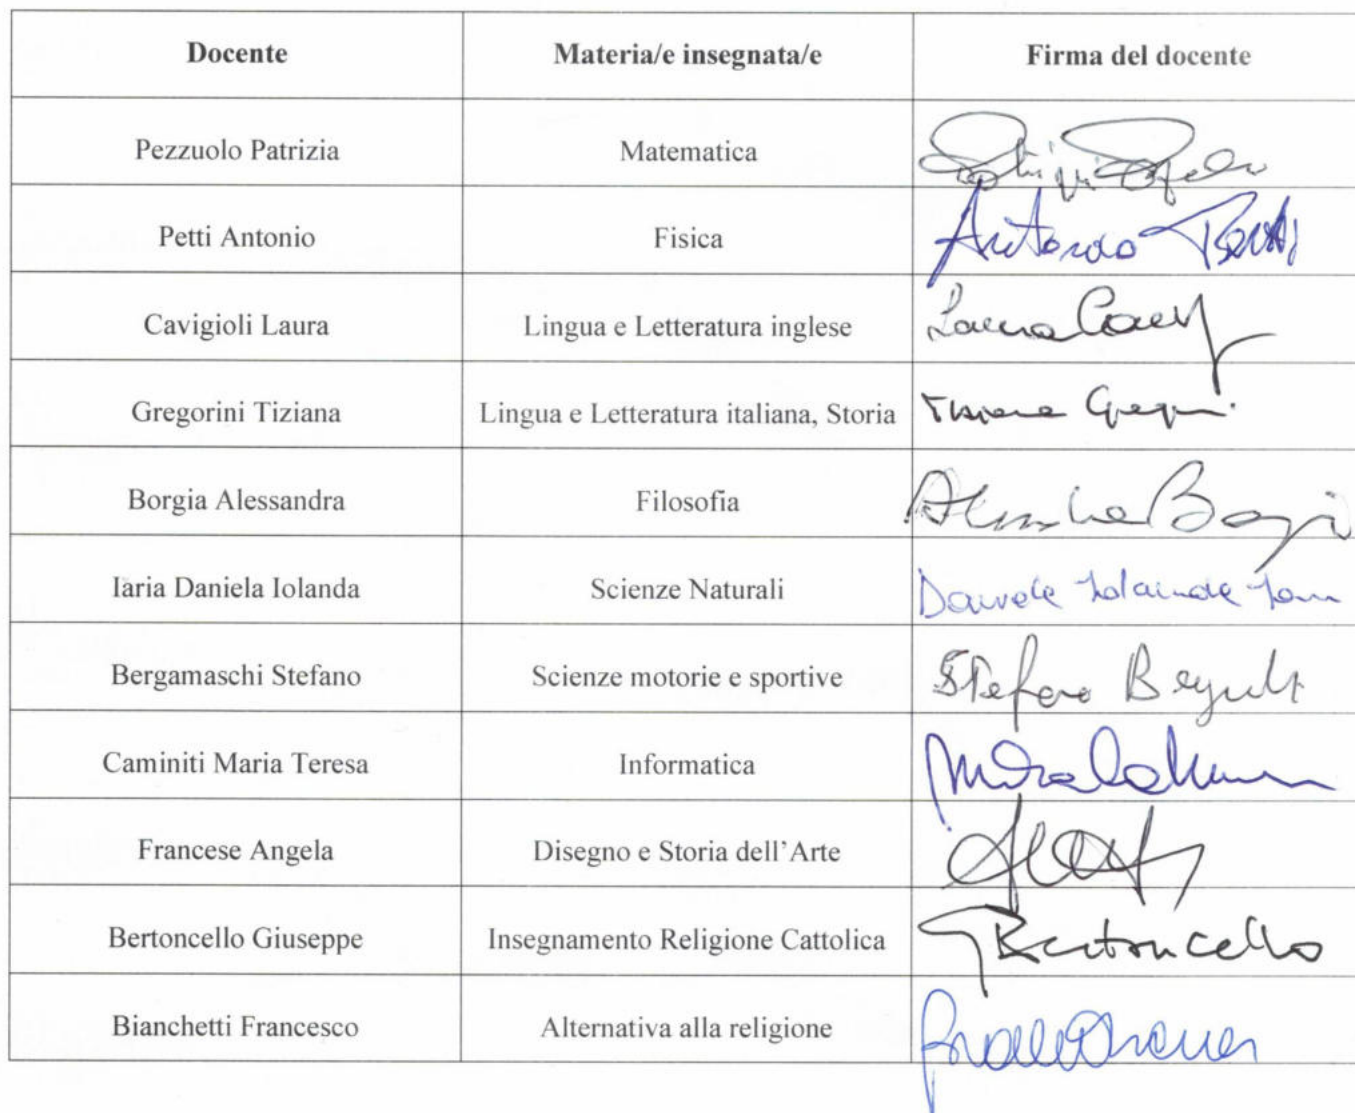 Docente Materia/e insegnata/e Firma del docente
Pezzuolo Patrizia Matematica
Petti Antonio Fisica Antonio Petti
Cavigioli Laura Lingua e Letteratura inglese Laura
Gregorini Tiziana Lingua e Letteratura italiana, Storia Tiziana
Borgia Alessandra Filosofia
Iaria Daniela Iolanda Scienze Naturali Daniela Iolanda
Bergamaschi Stefano Scienze motorie e sportive Stefano
Caminiti Maria Teresa Informatica
Francese Angela Disegno e Storia dell’Arte
Bertoncello Giuseppe Insegnamento Religione Cattolica G Bertoncello
Bianchetti Francesco Alternativa alla religione